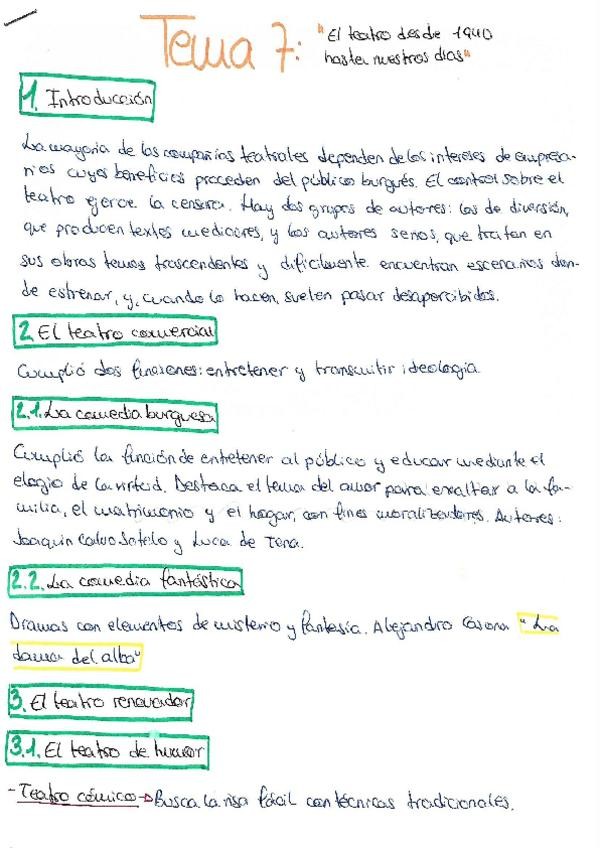 Tema 7: "El teatro desde 1940
hasta nuestros días"
1. Introducción
La mayoría de las compañías teatrales dependen de los intereses de empresa-
rios cuyos beneficios proceden del público burgués. El control sobre el
teatro ejerce la censura. Hay dos grupos de autores: los de diversión,
que producen textos mediocres, y los autores serios, que tratan en
sus obras temas trascendentes y dificilmente encuentran escenarios don-
de estrenar, y, cuando lo hacen, suelen pasar desapercibidos.
2. El teatro comercial
Cumplió dos funciones: entretener y transmitir ideología
2.1. La comedia burguesa
Cumplió la función de entretener al público y educar mediante el
elogio de la virtud. Destaca el tema del amor para exaltar a la fa-
milia, el matrimonio y el hogar, con fines moralizadores. Autores:
Joaquín Calvo Sotelo y Luca de Tena.
2.2. La comedia fantástica
Dramas con elementos de misterio y fantasía. Alejandro Casona "La
dama del alba"
3. El teatro renovador
3.1. El teatro de humor
- Teatro cómico → Busca la risa fácil con técnicas tradicionales.